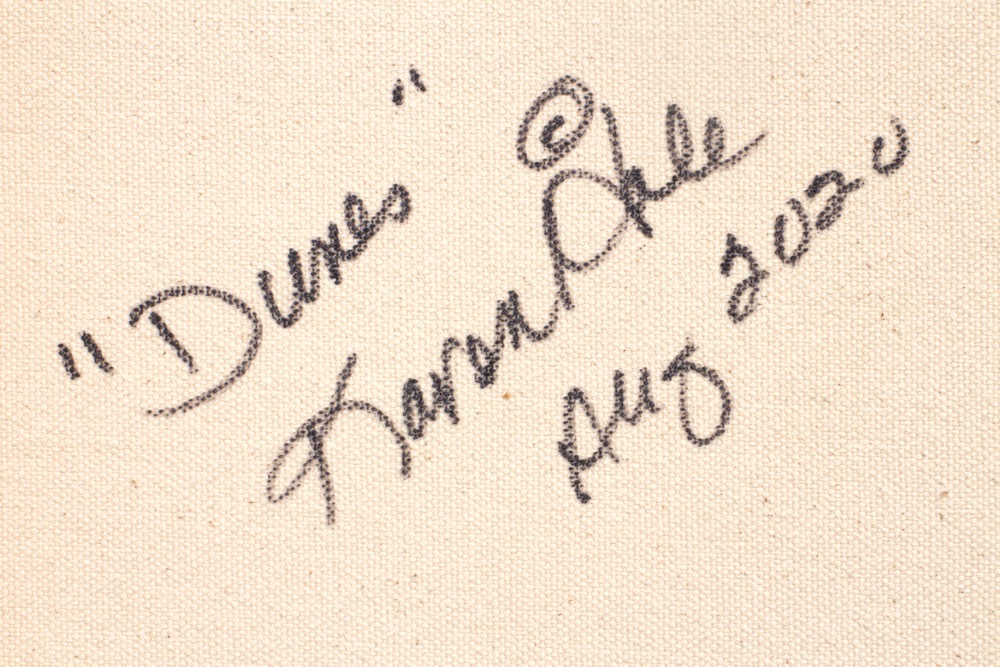 "Dunes" ©
Karon Hale
Aug 2020